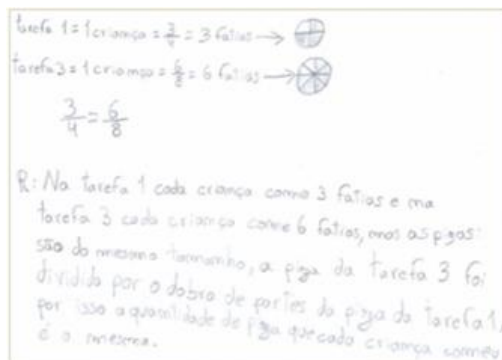 tarefa 1 = 1 criança = 3/4 = 3 fatias →
tarefa 3 = 1 criança = 6/8 = 6 fatias →
3/4 = 6/8
R: Na tarefa 1 cada criança come 3 fatias e na
tarefa 3 cada criança come 6 fatias, mas as pizas
são do mesmo tamanho, a piza da tarefa 3 foi
dividida por o dobro de partes da piza da tarefa 1,
por isso a quantidade de piza que cada criança comeu
é a mesma.